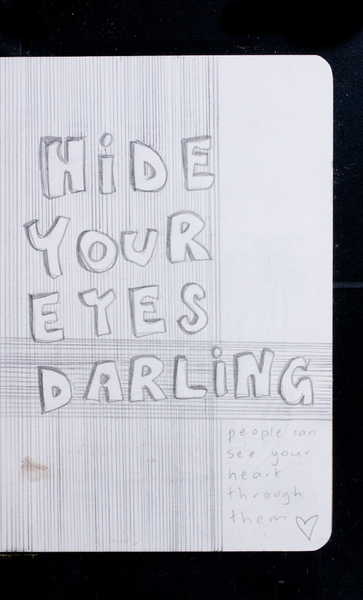 HiDE
YOUR
EYES
DARLiNG
people can
see your
heart
through
them